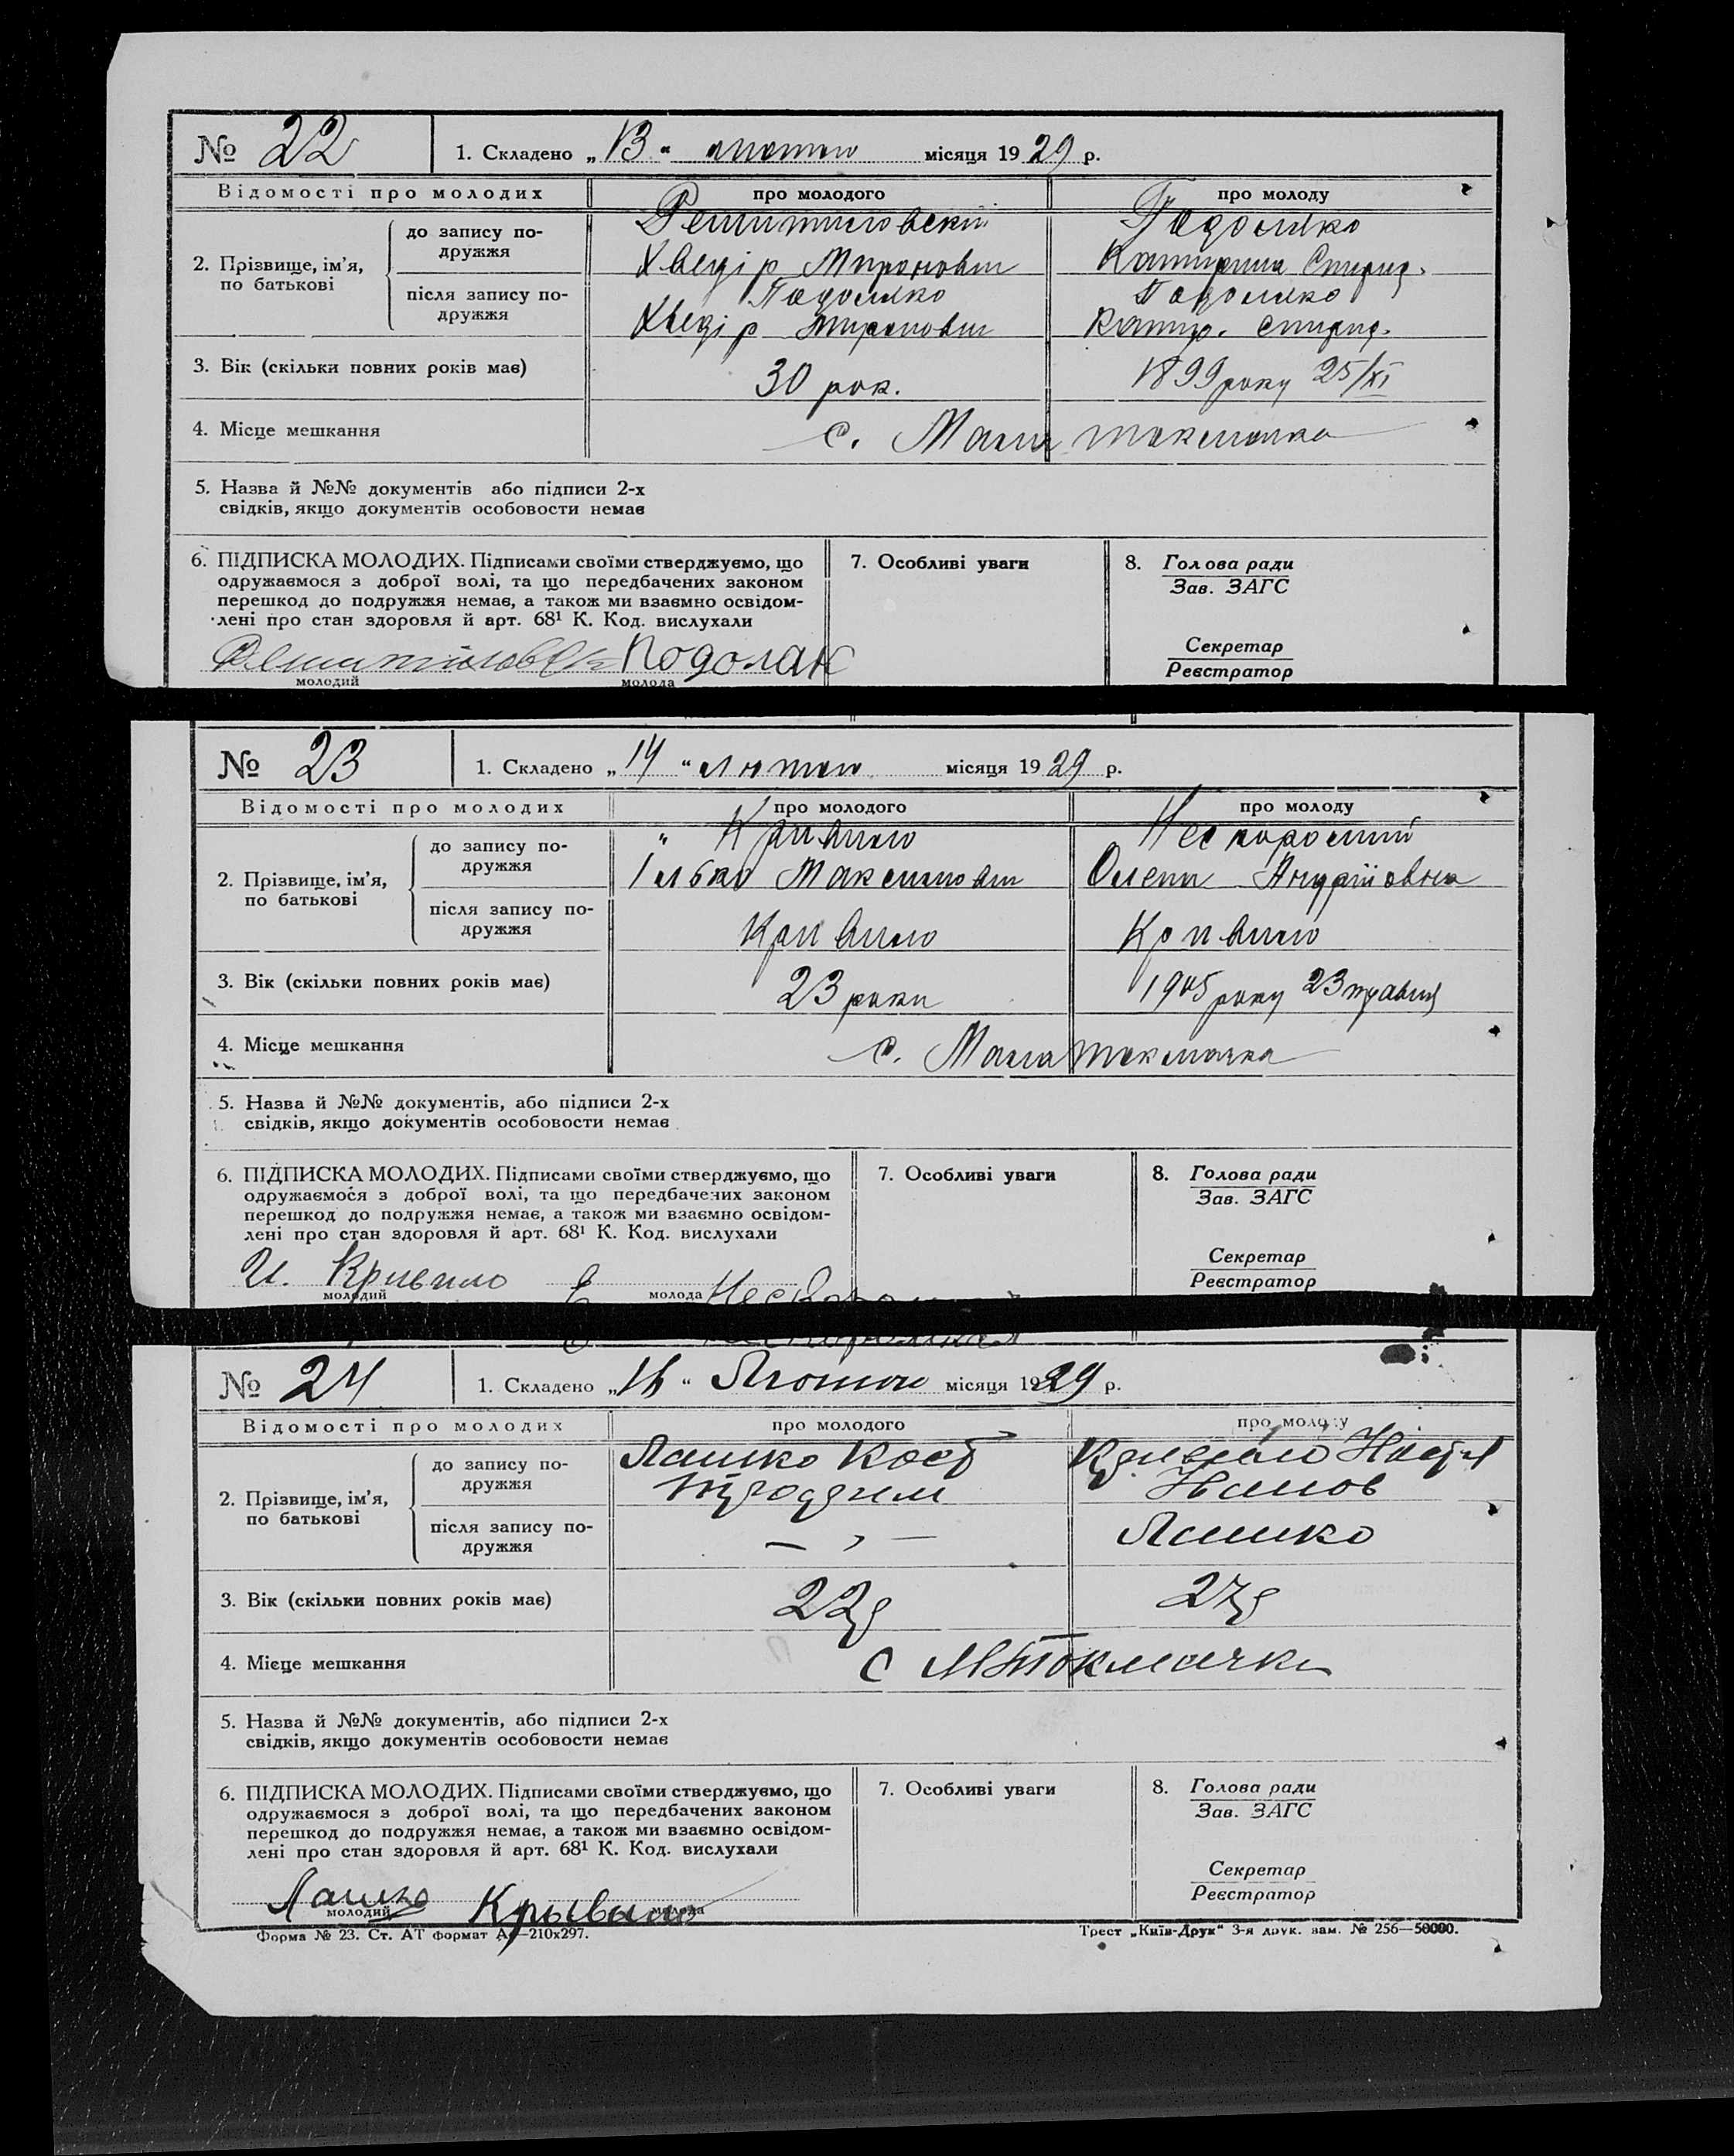 № 22 1. Складено „13" лютого місяця 1929 р.
Відомості про молодих про молодого про молоду
2. Прізвище, ім'я, по батькові
до запису подружжя Решитиловский Подоляко
Хведір Миронович Катирина Спирид.
після запису подружжя Подоляко Подоляко
Хведір Миронович Катир. Спирид.
3. Вік (скільки повних років має) 30 рок. 1899 року 25/XI
4. Місце мешкання с. Мала Токмачка
5. Назва й №№ документів або підписи 2-х
свідків, якщо документів особовости немає
6. ПІДПИСКА МОЛОДИХ. Підписами своїми стверджуємо, що 7. Особливі уваги 8. Голова ради
одружаємося з доброї волі, та що передбачених законом Зав. ЗАГС
перешкод до подружжя немає, а також ми взаємно освідом-
лені про стан здоровля й арт. 68¹ К. Код. вислухали
Секретар
Реєстратор
Подолак
молодий молода
№ 23 1. Складено „14" лютого місяця 1929 р.
Відомості про молодих про молодого про молоду
2. Прізвище, ім'я, по батькові
до запису подружжя Кривило Нескоромний
Ілько Максимович Олена Андріївна
після запису подружжя Кривило Кривило
3. Вік (скільки повних років має) 23 роки 1905 року 23 травня
4. Місце мешкання с. Мала Токмачка
5. Назва й №№ документів, або підписи 2-х
свідків, якщо документів особовости немає
6. ПІДПИСКА МОЛОДИХ. Підписами своїми стверджуємо, що 7. Особливі уваги 8. Голова ради
одружаємося з доброї волі, та що передбачених законом Зав. ЗАГС
перешкод до подружжя немає, а також ми взаємно освідом-
лені про стан здоровля й арт. 68¹ К. Код. вислухали
Секретар
Реєстратор
И. Кривило
молодий молода
№ 24 1. Складено „16" Лютого місяця 1929 р.
Відомості про молодих про молодого про молоду
2. Прізвище, ім'я, по батькові
до запису подружжя Лашко Кост Кривило Настя
Иванов
після запису подружжя — „ — Лашко
3. Вік (скільки повних років має) 22р 27р
4. Місце мешкання с М Токмачки
5. Назва й №№ документів, або підписи 2-х
свідків, якщо документів особовости немає
6. ПІДПИСКА МОЛОДИХ. Підписами своїми стверджуємо, що 7. Особливі уваги 8. Голова ради
одружаємося з доброї волі, та що передбачених законом Зав. ЗАГС
перешкод до подружжя немає, а також ми взаємно освідом-
лені про стан здоровля й арт. 68¹ К. Код. вислухали
Секретар
Реєстратор
Лашко Крывило
молодий молода
Форма № 23. Ст. АТ формат А₄—210х297. Трест „Київ-Друк" 3-я друк. зам. № 256—50000.